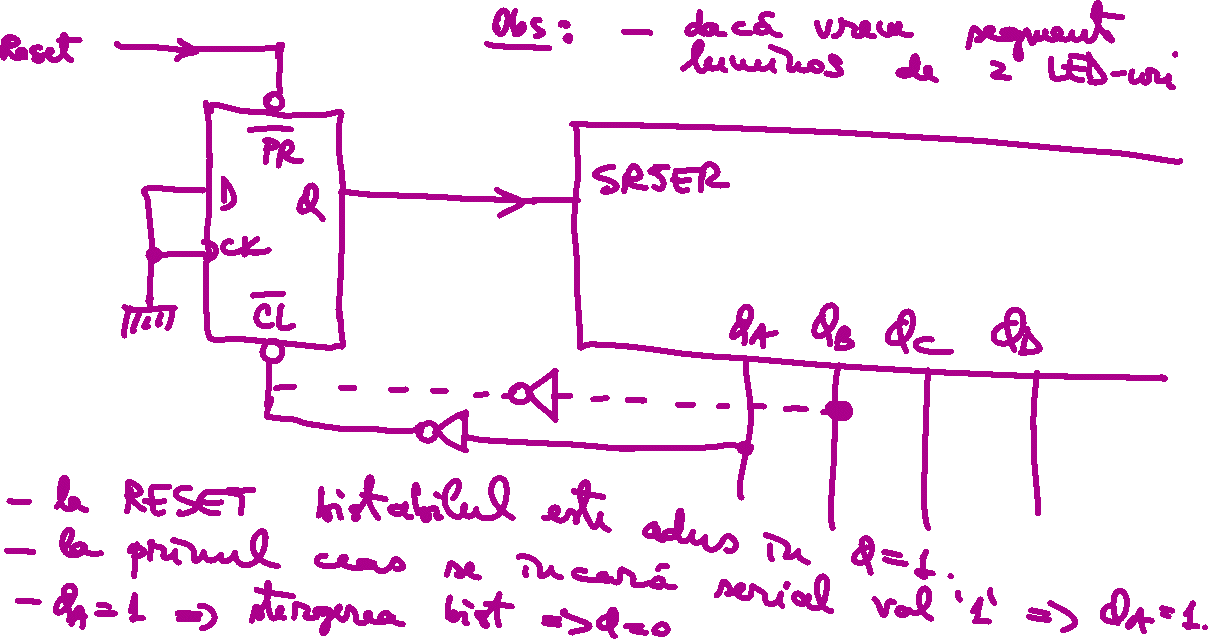 Reset
Obs: - dacă vreau segment
luminos de 2 LED-uri
PR
D Q
CK
CL
SRSER
QA QB QC QD
- la RESET bistabilul este adus în Q=1.
- la primul ceas se încară serial val '1' => QA=1.
- QA=1 => ștergerea bist => Q=0